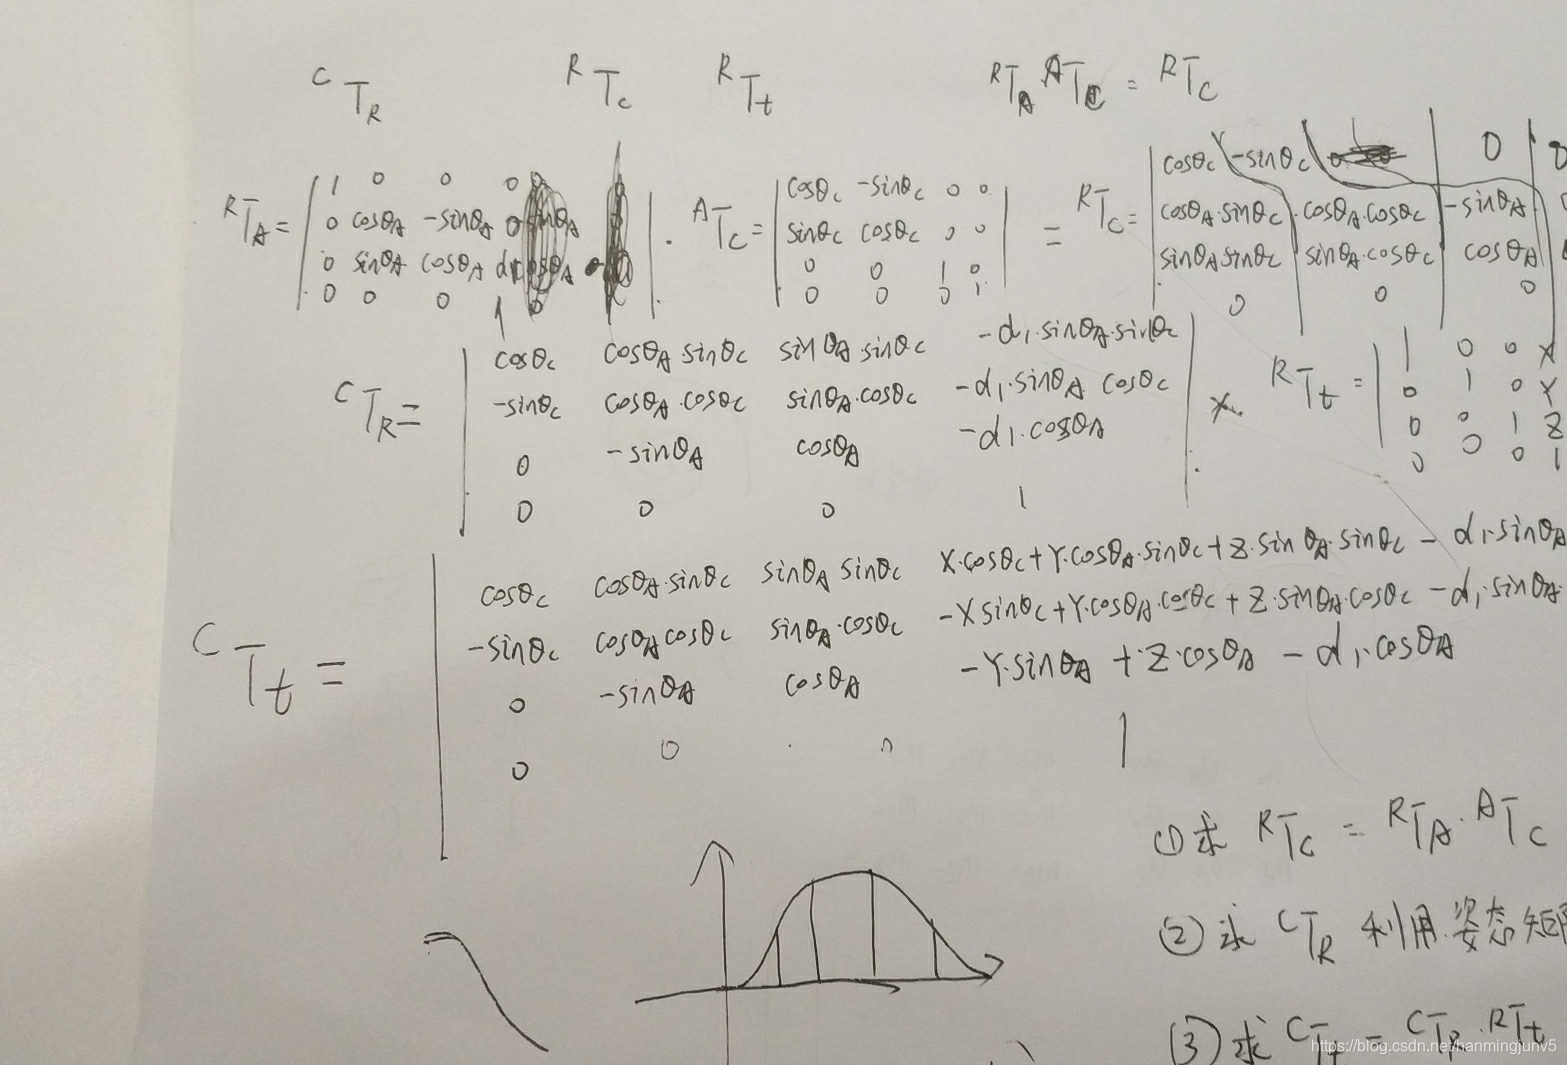 C T R    R T c    R T t    R T A A T C = R T C
R T A = | 1 0 0 0 | · A T C = | cosθc -sinθc 0 0 | = R T C = | cosθc -sinθc 0 0
0 cosθA -sinθA 0    sinθc cosθc 0 0    cosθA·sinθc cosθA·cosθc -sinθA
0 sinθA cosθA d1    0 0 1 0    sinθA sinθc sinθA·cosθc cosθA
0 0 0 1    0 0 0 1    0 0 0
C T R = | cosθc cosθA·sinθc sinθA·sinθc -d1·sinθA·sinθc | × R T t = | 1 0 0 X
-sinθc cosθA·cosθc sinθA·cosθc -d1·sinθA cosθc    0 1 0 Y
0 -sinθA cosθA -d1·cosθA    0 0 1 Z
0 0 0 1    0 0 0 1
C T t = | cosθc cosθA·sinθc sinθA sinθc X·cosθc+Y·cosθA·sinθc+Z·sinθA·sinθc - d1·sinθA
-sinθc cosθA cosθc sinθA·cosθc -X sinθc+Y·cosθA·cosθc+Z·sinθA·cosθc - d1·sinθA·
0 -sinθA cosθA -Y·sinθA +Z·cosθA - d1·cosθA
0 0 0 1
①求 R T C = R T A · A T C
②求 C T R 利用姿态矩
③求 C T t = C T R · R T t
https://blog.csdn.net/hanmingjunv5